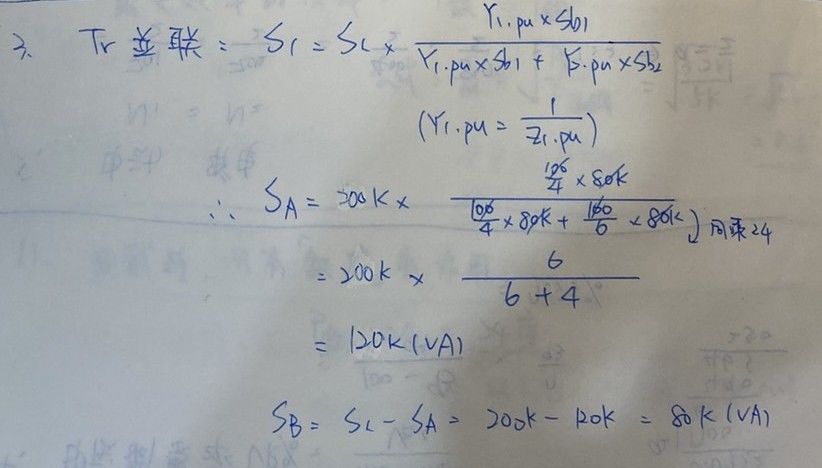 3. Tr 並联 = S₁ = S_L × \frac{Y₁.pu × Sb₁}{Y₁.pu × Sb₁ + Y₂.pu × Sb₂}
(Y₁.pu = \frac{1}{Z₁.pu})
∴ S_A = 200K × \frac{\frac{100}{4} × 80K}{\frac{100}{4} × 80K + \frac{100}{6} × 80K} 同乘24
= 200K × \frac{6}{6 + 4}
= 120K (VA)
S_B = S_L - S_A = 200K - 120K = 80K (VA)